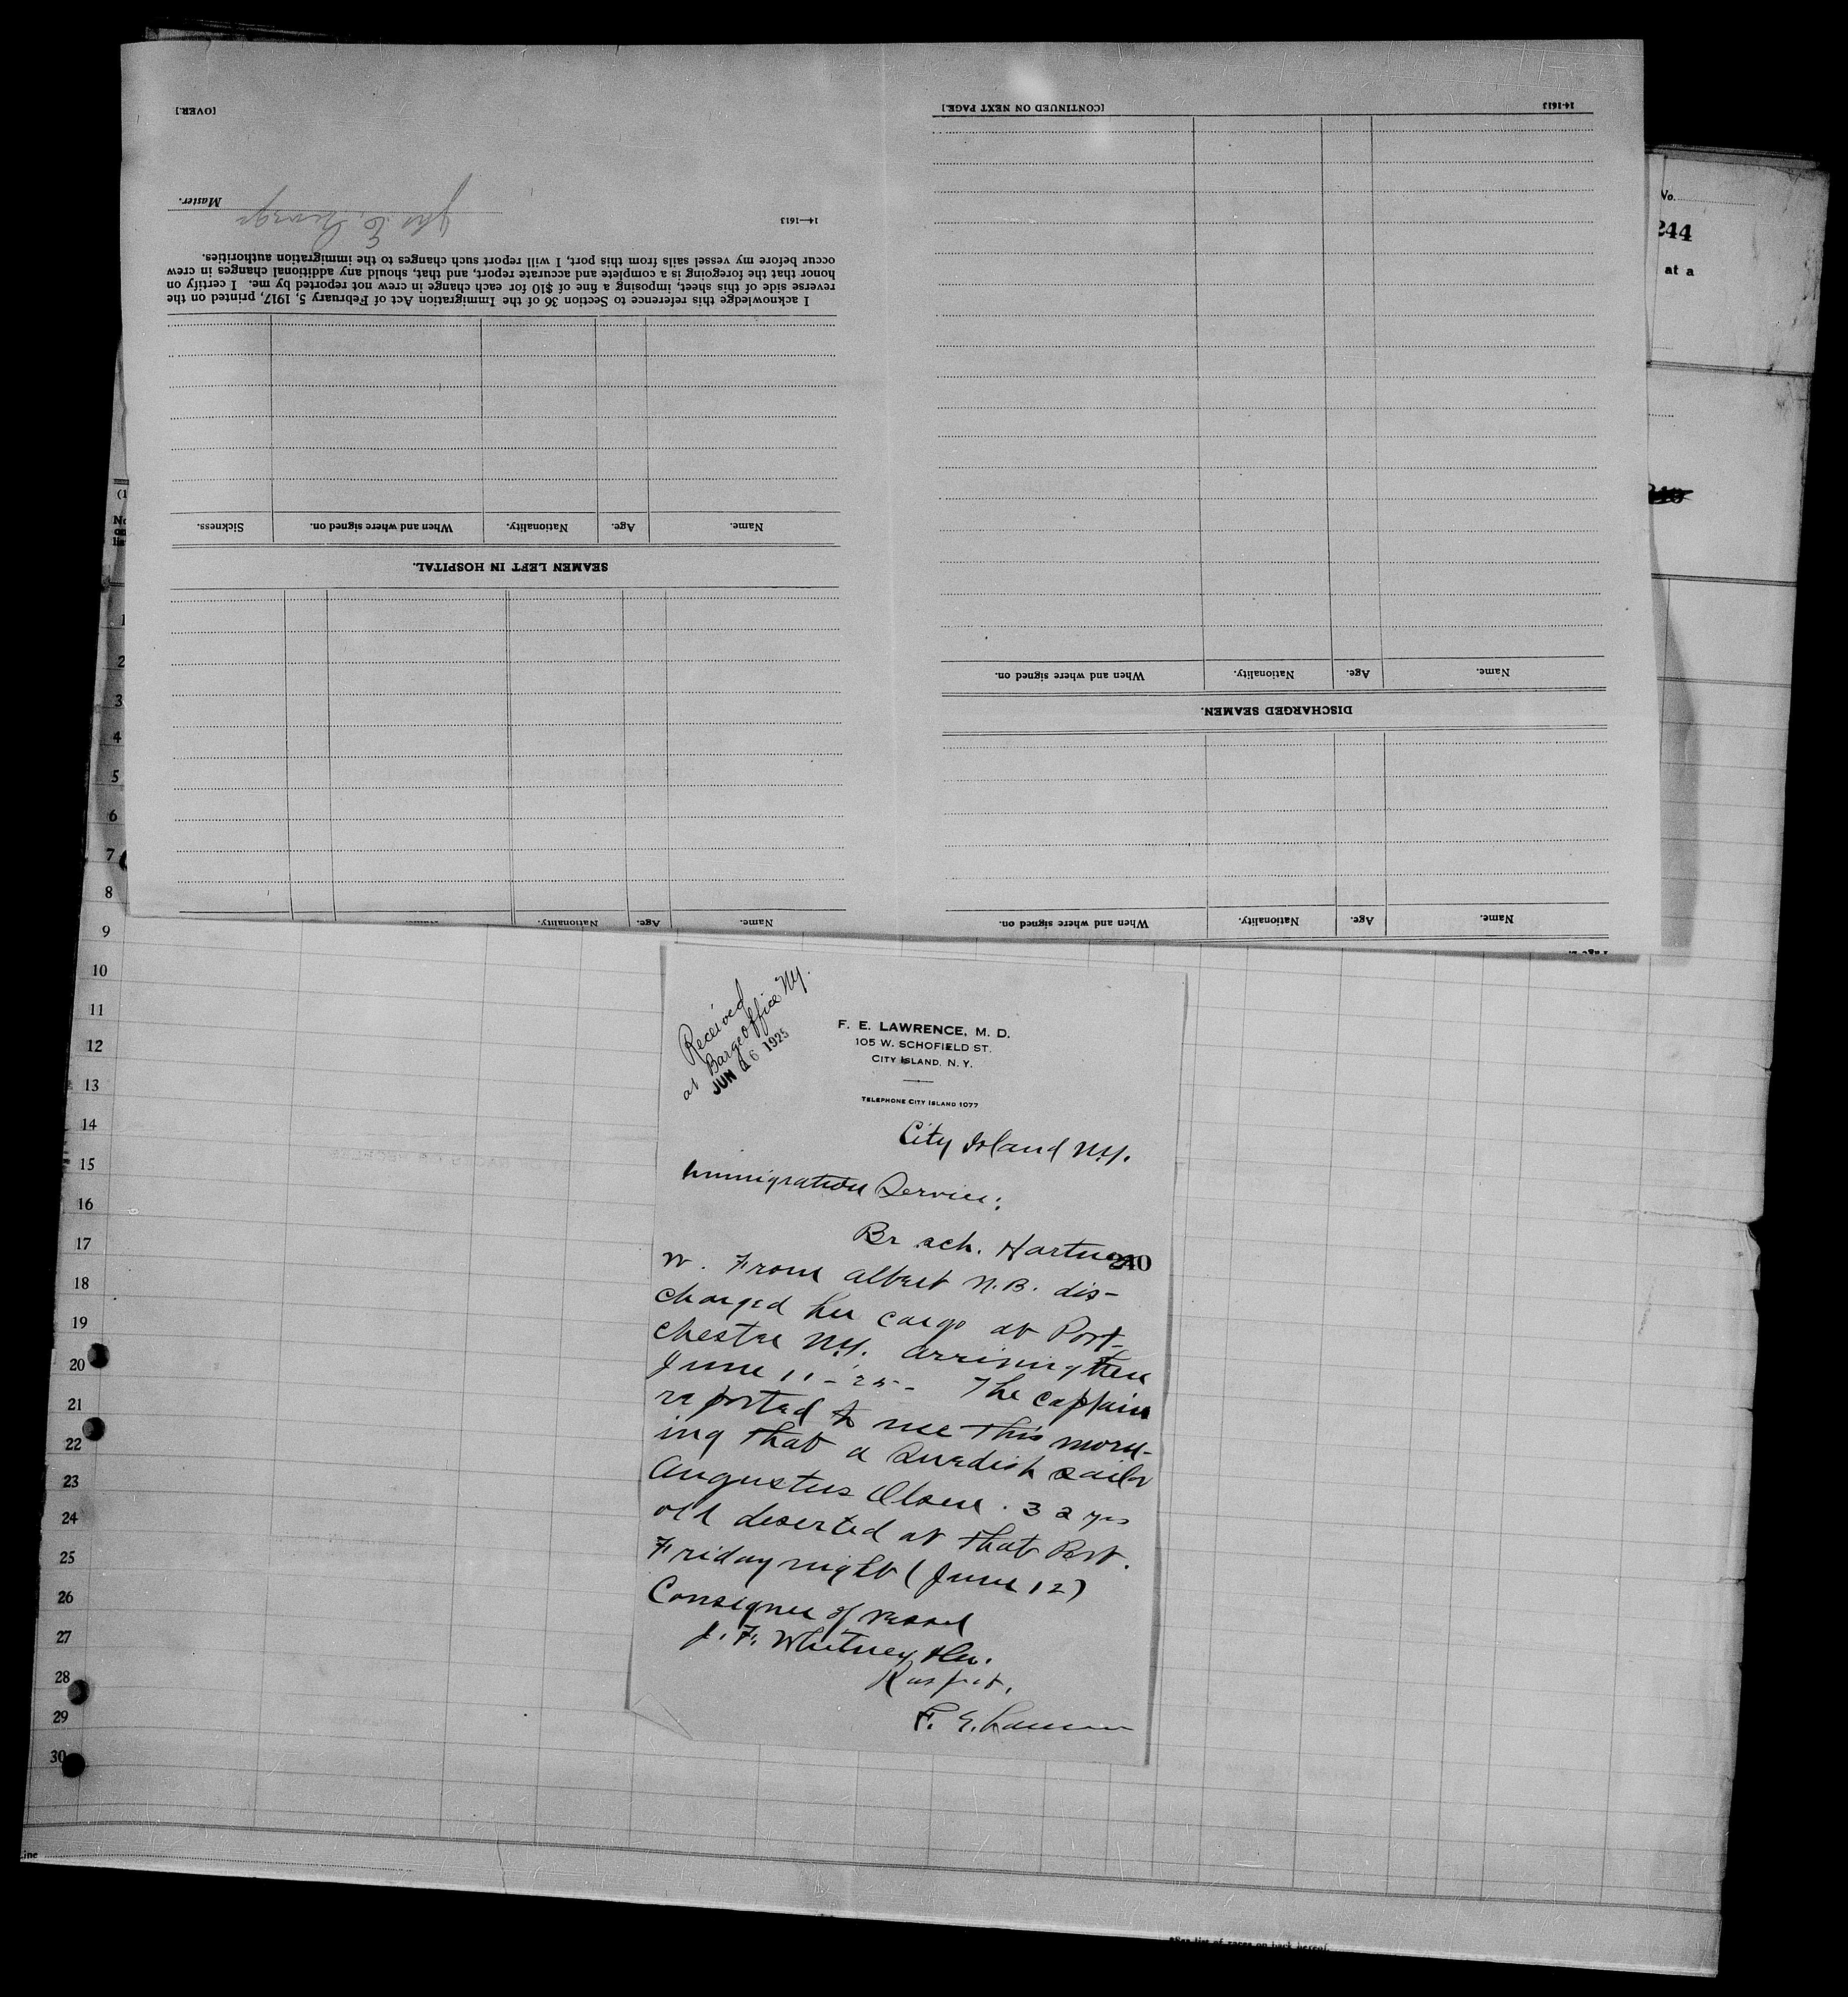 [OVER.]
Master.
14—1613
I acknowledge this reference to Section 36 of the Immigration Act of February 5, 1917, printed on the
reverse side of this sheet, imposing a fine of $10 for each change in crew not reported by me. I certify on
honor that the foregoing is a complete and accurate report, and that, should any additional changes in crew
occur before my vessel sails from this port, I will report such changes to the immigration authorities.
Name. Age. Nationality. When and where signed on. Sickness.
SEAMEN LEFT IN HOSPITAL.
Name. Age. Nationality.
[CONTINUED ON NEXT PAGE.]
14-1613
Name. Age. Nationality. When and where signed on.
DISCHARGED SEAMEN.
Name. Age. Nationality. When and where signed on.
No.
244
at a
1
2
3
4
5
6
7
8
9
10
11
12
13
14
15
16
17
18
19
20
21
22
23
24
25
26
27
28
29
30
Received
at Barge Office N.Y.
JUN 16 1925
F. E. LAWRENCE, M. D.
105 W. SCHOFIELD ST.
CITY ISLAND, N. Y.
TELEPHONE CITY ISLAND 1077
City Island N.Y.
Immigration Service:
Br sch. Hartney
240
W. From Albert N.B. dis-
charged her cargo at Port-
chester N.Y. arriving there
June 11-25- The captain
reported to me this morn-
ing that a Swedish sailor
Augustus Olsen. 32 yrs
old deserted at that Port.
Friday night (June 12)
Consignee of vessel
J. F. Whitney & Co.
F. E. Lawrence
*See list of races on back hereof.